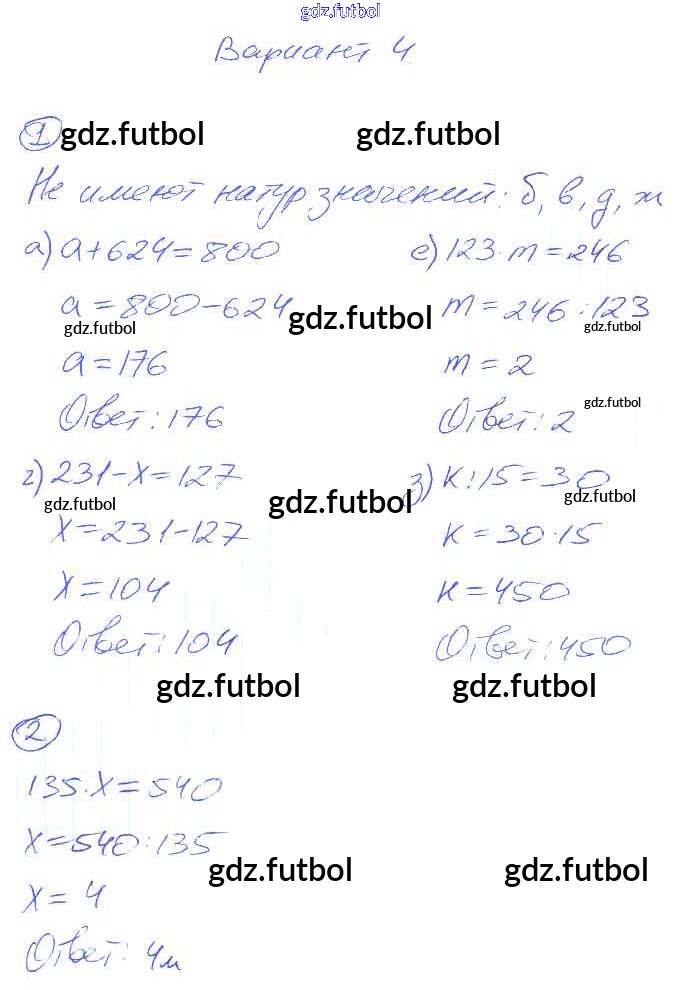 gdz.futbol
Вариант 4
1 gdz.futbol gdz.futbol
Не имеют натур значений: б, в, д, ж
а) a+624=800
a=800-624
gdz.futbol
gdz.futbol
a=176
Ответ: 176
е) 123·m=246
m=246:123
gdz.futbol
m=2
gdz.futbol
Ответ: 2
г) 231-x=127
gdz.futbol
gdz.futbol
x=231-127
x=104
Ответ: 104
з) k:15=30
gdz.futbol
k=30·15
k=450
Ответ: 450
gdz.futbol gdz.futbol
2
135·x=540
x=540:135
gdz.futbol gdz.futbol
x=4
Ответ: 4м